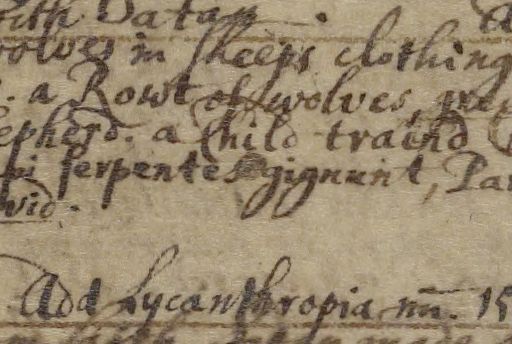 with Satan.
wolves in sheeps clothing
. a Rowt of wolves
epherd. a Child traind
serpentes gignunt, Par
vid.
Add Lycanthropia nn. 15